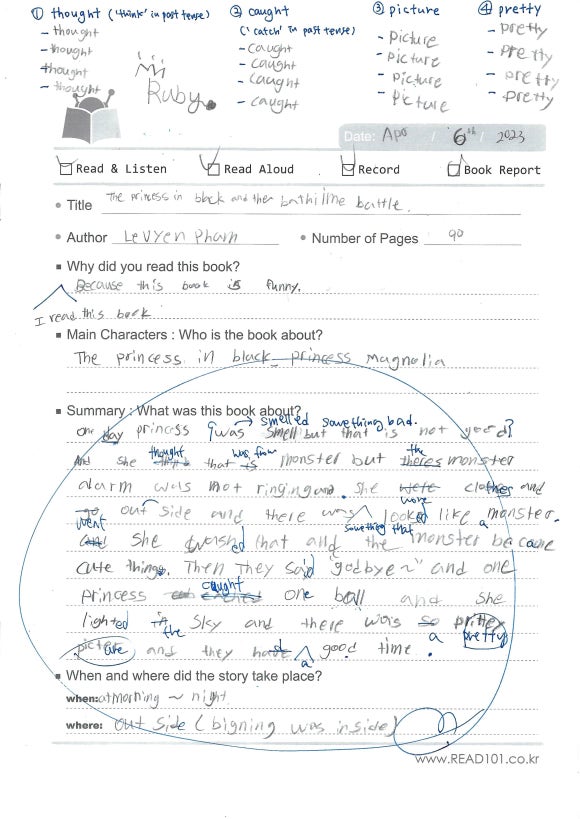 ① thought ('think' in past tense)
- thought
- thought
- thought
- thought
② caught
('catch' in past tense)
- caught
- caught
- caught
- caught
③ picture
- picture
- picture
- picture
- picture
④ pretty
- pretty
- pretty
- pretty
- pretty
Ruby
Date: Apr / 6th / 2023
Read & Listen Read Aloud Record Book Report
• Title The princess in black and the bathtime battle.
• Author LeUyen Pham • Number of Pages 90
▪ Why did you read this book?
Because this book is funny.
I read this book
▪ Main Characters : Who is the book about?
The princess in black princess magnolia
▪ Summary : What was this book about?
smelled something bad.
one day princess was smell but that is not good
thought was from the
And she that is monster but theres monster
alarm was not ringing and she were clothes and
wore
go out side and there was looked like a monster.
went something that
and she washed that and the monster became
cute things. Then they said godbye~ and one
caught
princess one ball and she
lighted in sky and there was so prittey
the a pretty
picture and they had good time.
a
▪ When and where did the story take place?
when: at morning ~ night
where: out side (bigning was inside)
www.READ101.co.kr